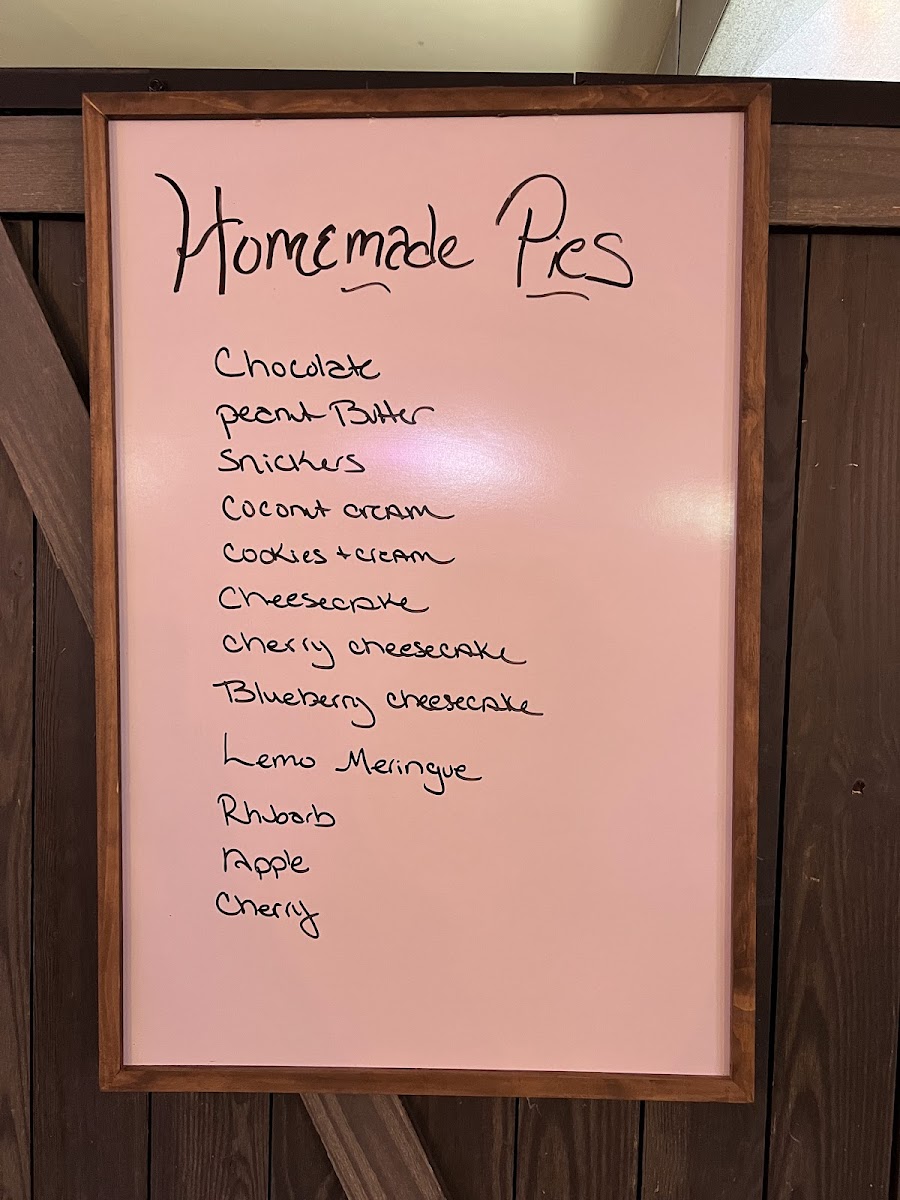 Homemade Pies
Chocolate
peanut Butter
Snickers
Coconut cream
Cookies + cream
Cheesecake
cherry cheesecake
Blueberry cheesecake
Lemo Meringue
Rhubarb
Apple
Cherry